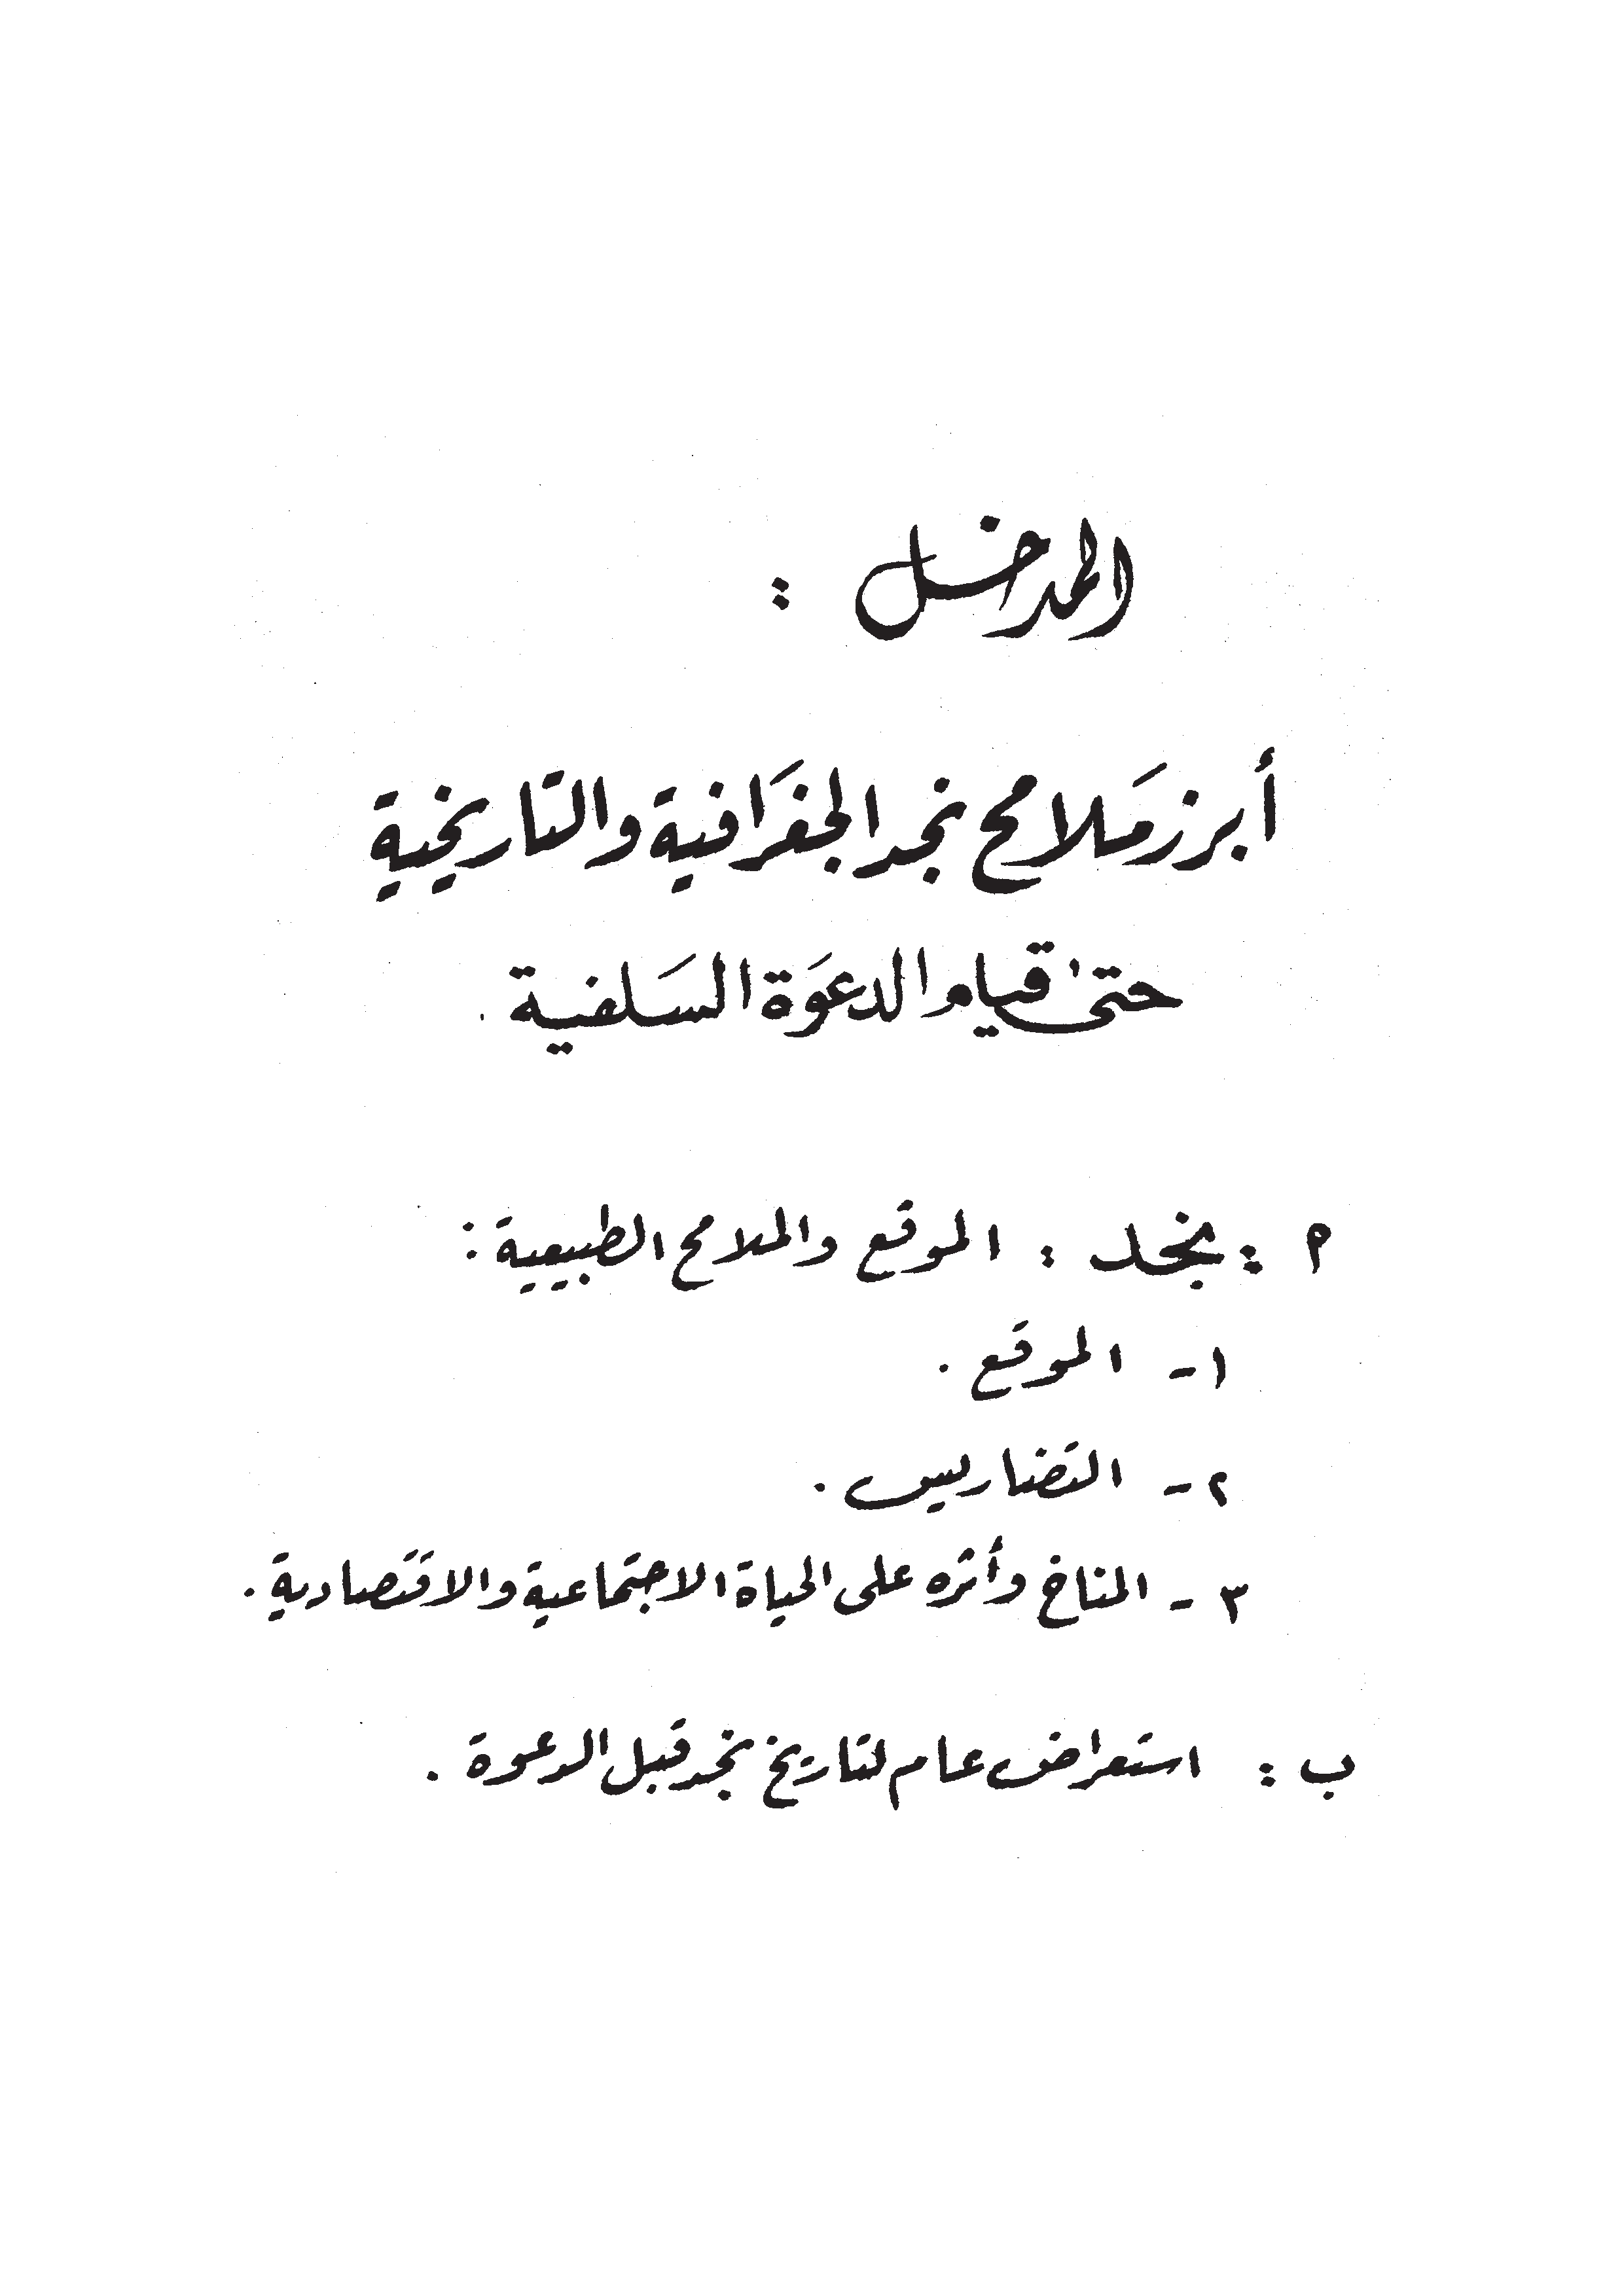 المدخل :
أبرز مَلامح نجد الجغَرافية والتاريخية
حتىٰ قيام الدعوَة السَلفية .
م : نجد : الموقع والملامح الطبيعية :
١- الموقع .
٢- التضاريس .
٣- المناخ وأثره على الحياة الاجتماعية والاقتصادية .
ب : استعراض عام لتاريخ نجد قبل الدعوة .